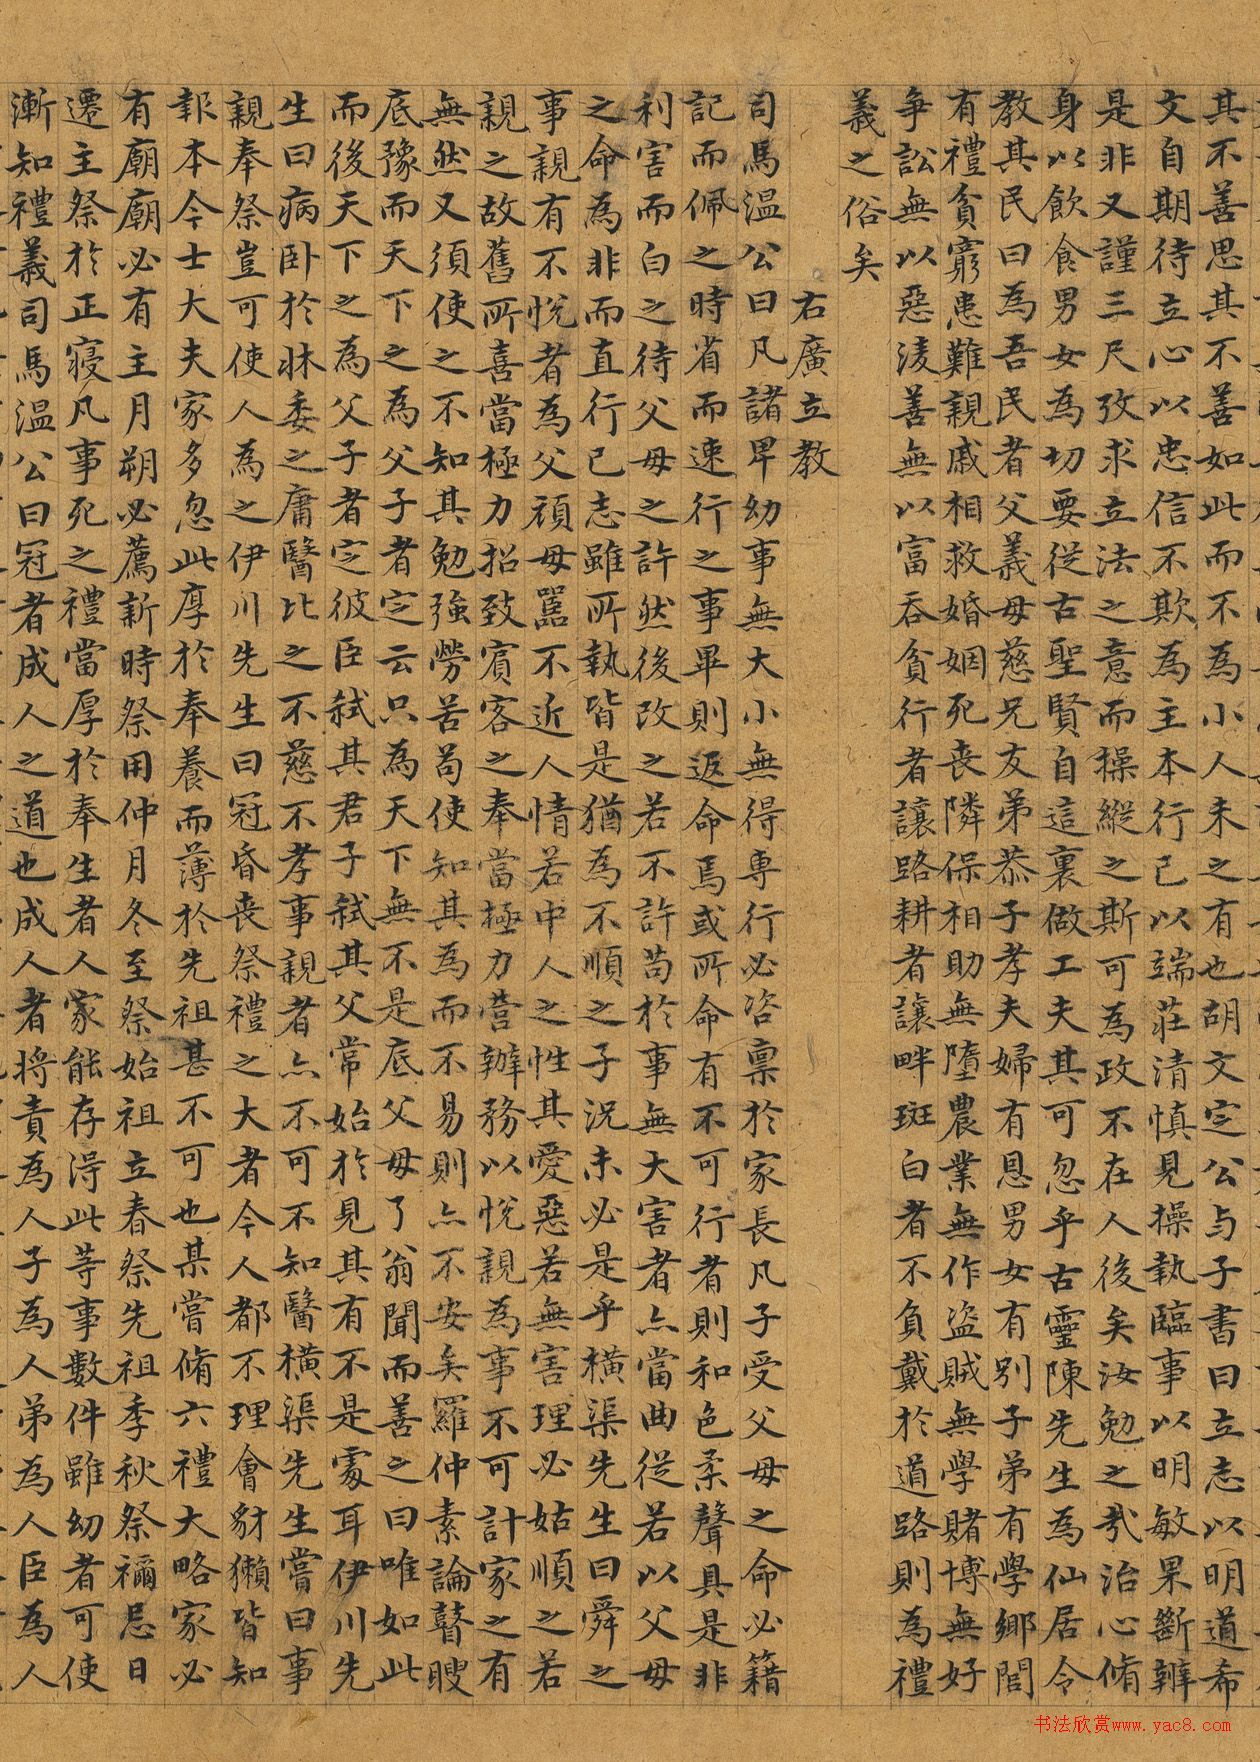 其不善思其不善如此而不為小人未之有也胡文定公与子書曰立志以明道希
文自期待立心以忠信不欺為主本行己以端莊清慎見操執臨事以明敏果斷辨
是非又謹三尺攷求立法之意而操縱之斯可為政不在人後矣汝勉之㢤治心脩
身以飲食男女為切要従古聖賢自這裏做工夫其可忽乎古靈陳先生為仙居令
教其民曰為吾民者父義母慈兄友弟恭子孝夫婦有恩男女有别子弟有學鄉閭
有禮貧窮患難親戚相救婚姻死丧隣保相助無墮農業無作盜賊無學賭博無好
争訟無以惡淩善無以富吞貧行者讓路耕者讓畔斑白者不負戴於道路則為禮
義之俗矣
右廣立教
司馬温公曰凡諸卑幼事無大小無得専行必咨禀於家長凡子受父母之命必籍
記而佩之時省而速行之事畢則返命焉或所命有不可行者則和色柔聲具是非
利害而白之待父母之許然後改之若不許苟於事無大害者亦當曲従若以父母
之命為非而直行己志雖所執皆是猶為不順之子況未必是乎横渠先生曰舜之
事親有不悅者為父頑母嚚不近人情若中人之性其愛惡若無害理必姑順之若
親之故舊所喜當極力招致賓客之奉當極力營辦務以悅親為事不可計家之有
無然又須使之不知其勉強勞苦苟使知其為而不易則亦不安矣羅仲素論瞽瞍
底豫而天下之為父子者定云只為天下無不是底父母了翁聞而善之曰唯如此
而後天下之為父子者定彼臣弑其君子弑其父常始於見其有不是處耳伊川先
生曰病卧於牀委之庸醫比之不慈不孝事親者亦不可不知醫横渠先生嘗曰事
親奉祭豈可使人為之伊川先生曰冠昏丧祭禮之大者今人都不理會豺獺皆知
報本今士大夫家多忽此厚於奉養而薄於先祖甚不可也某嘗脩六禮大略家必
有廟廟必有主月朔必薦新時祭用仲月冬至祭始祖立春祭先祖季秋祭禰忌日
遷主祭於正寝凡事死之禮當厚於奉生者人家能存得此等事數件雖幼者可使
漸知禮義司馬温公曰冠者成人之道也成人者將責為人子為人弟為人臣為人
书法欣赏www.yac8.com